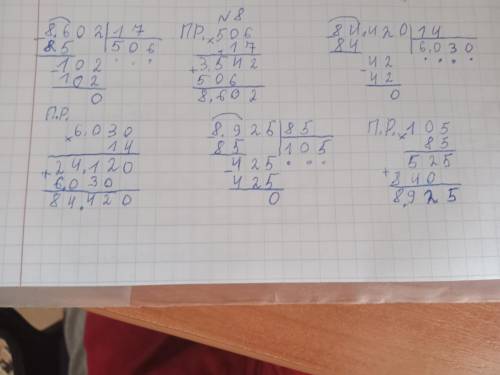 N8
8.602 | 17
85 | 506
-102 . . .
102
0
ПР. × 506
17
+ 3.542
506
8.602
84.420 | 14
84 | 6.030
-42 . . . .
42
0
П.Р.
× 6.030
14
+ 24.120
6.030
84.420
8.925 | 85
85 | 105
-425 . . .
425
0
П.Р. × 105
85
+ 525
840
8.925